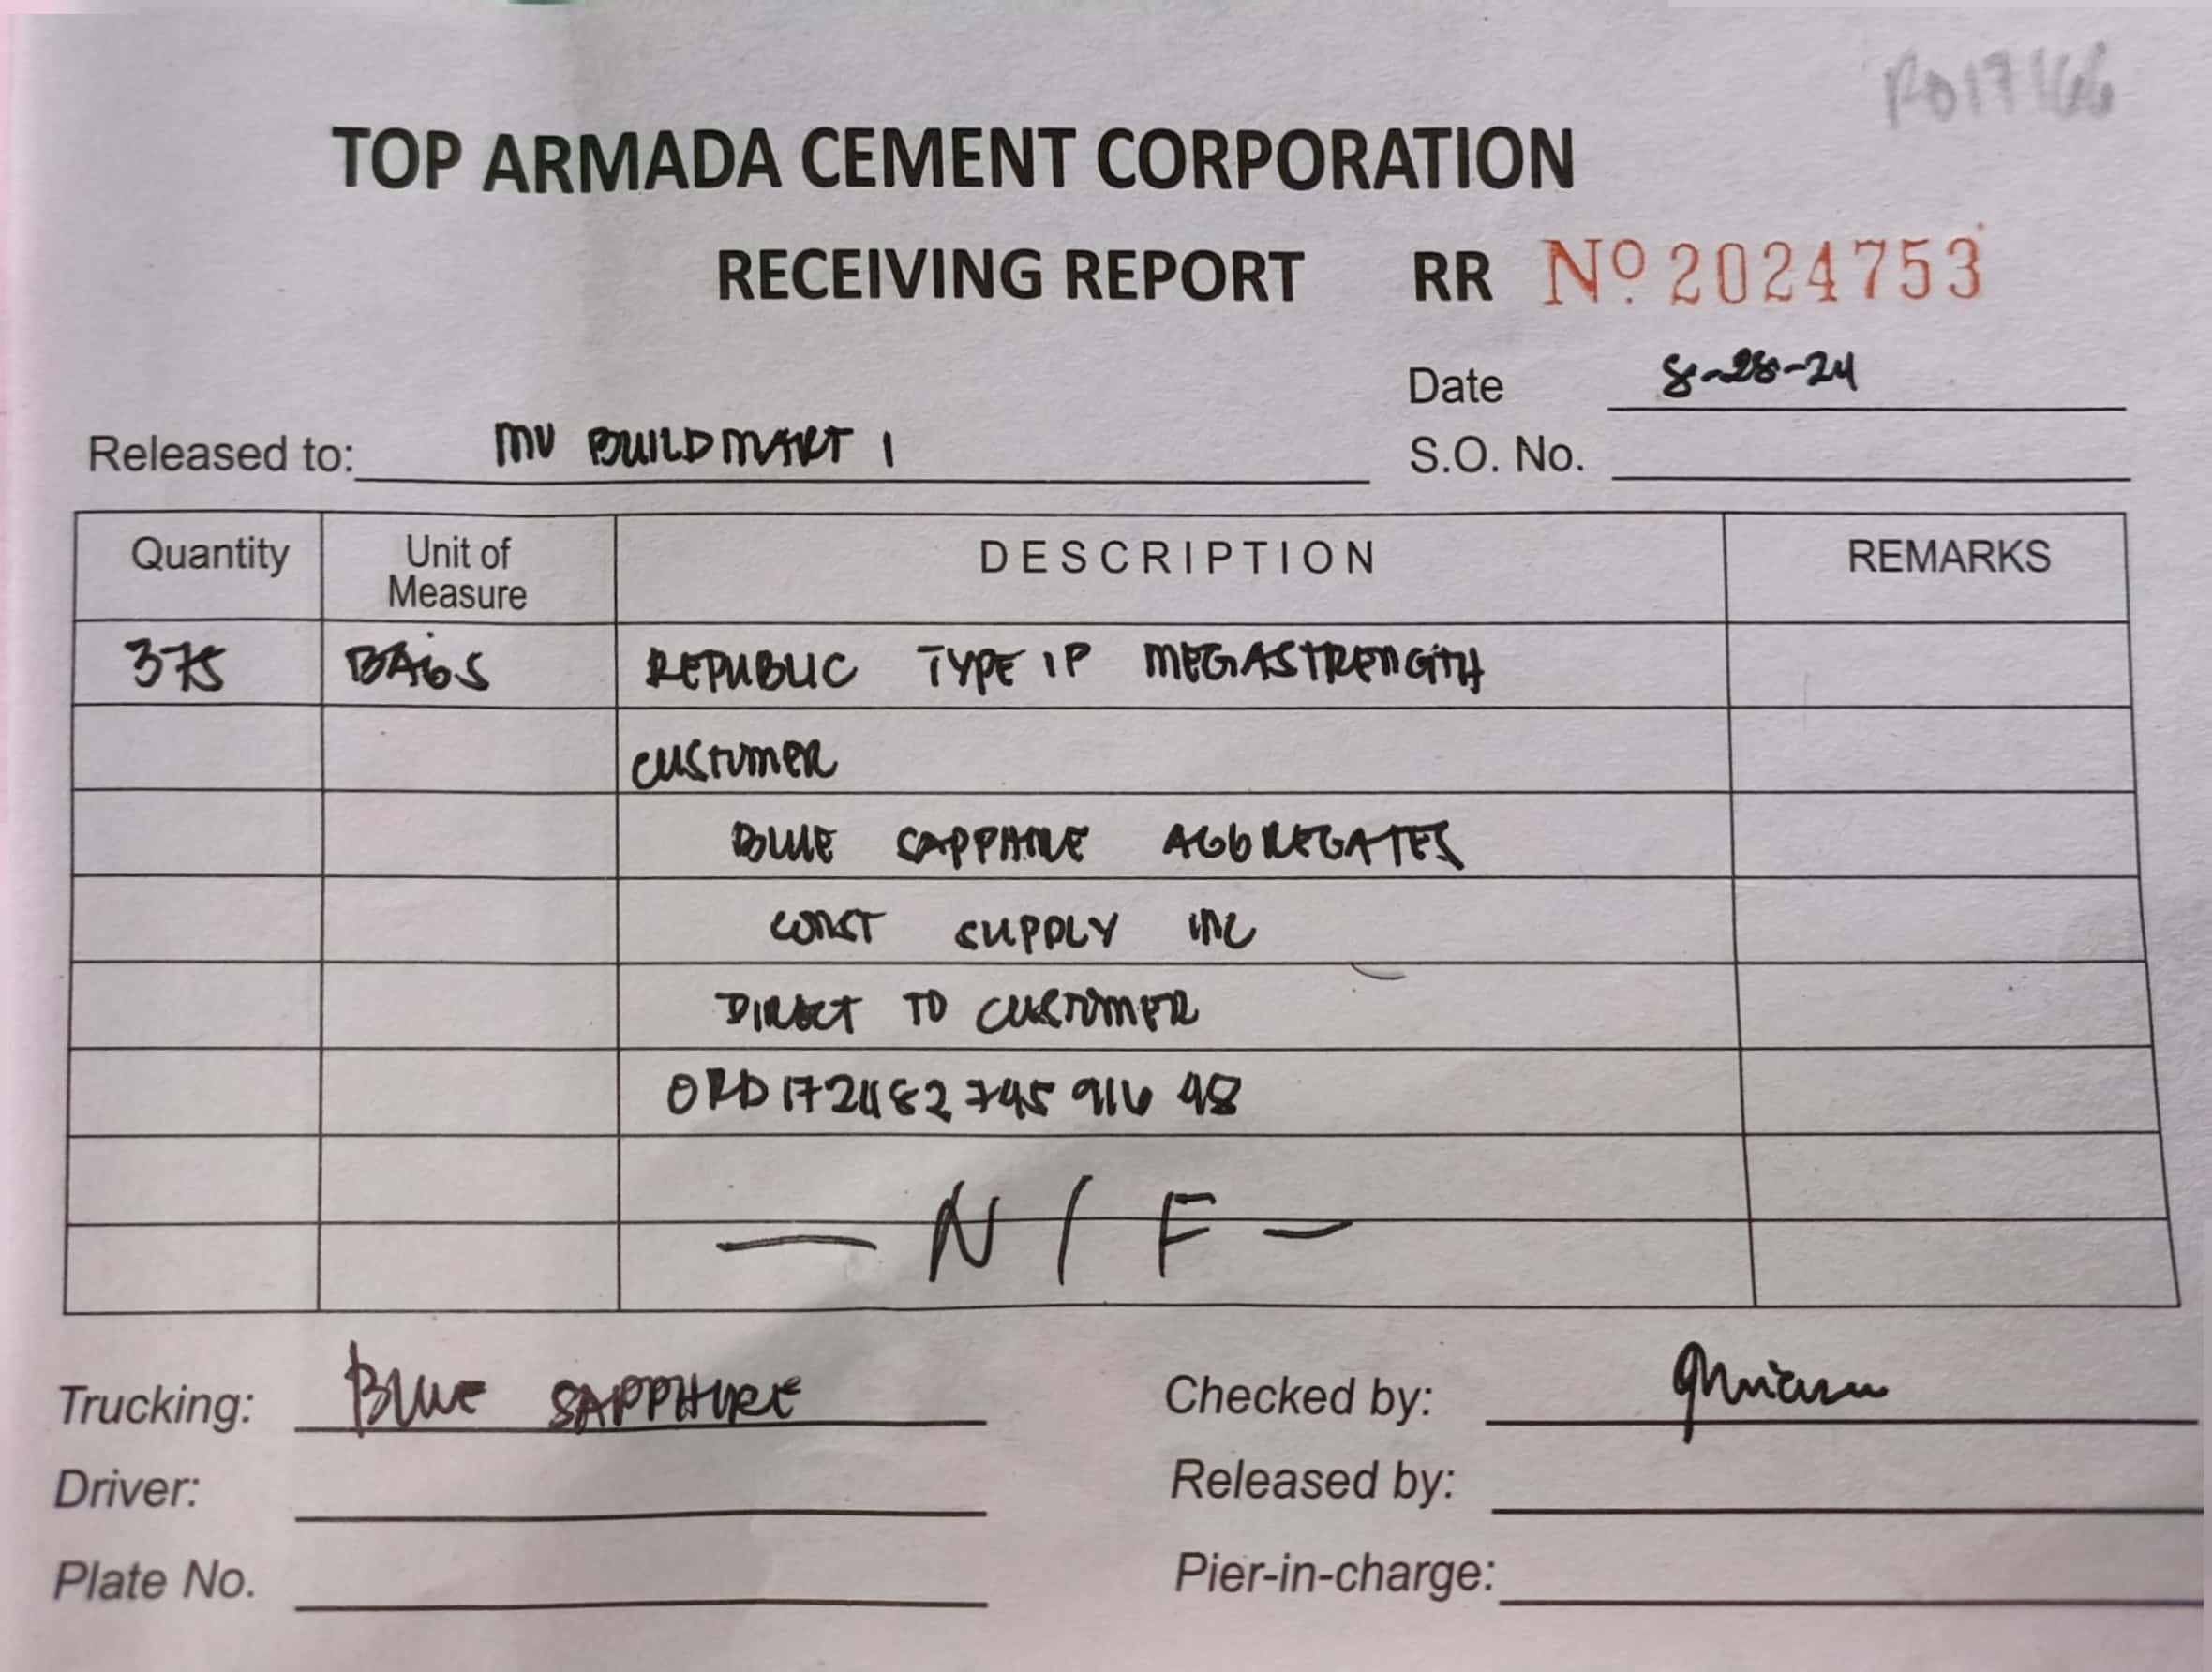 PO17166
TOP ARMADA CEMENT CORPORATION
RECEIVING REPORT RR Nº 2024753
Date 8-28-24
Released to: MV BUILDMART 1 S.O. No.
Quantity Unit of Measure DESCRIPTION REMARKS
375 BAGS REPUBLIC TYPE 1P MEGASTRENGTH
CUSTOMER
BLUE SAPPHIRE AGGREGATES
CONST SUPPLY INC
DIRECT TO CUSTOMER
ORD172482745916 48
— N / F —
Trucking: BLUE SAPPHIRE Checked by:
Driver: Released by:
Plate No. Pier-in-charge: